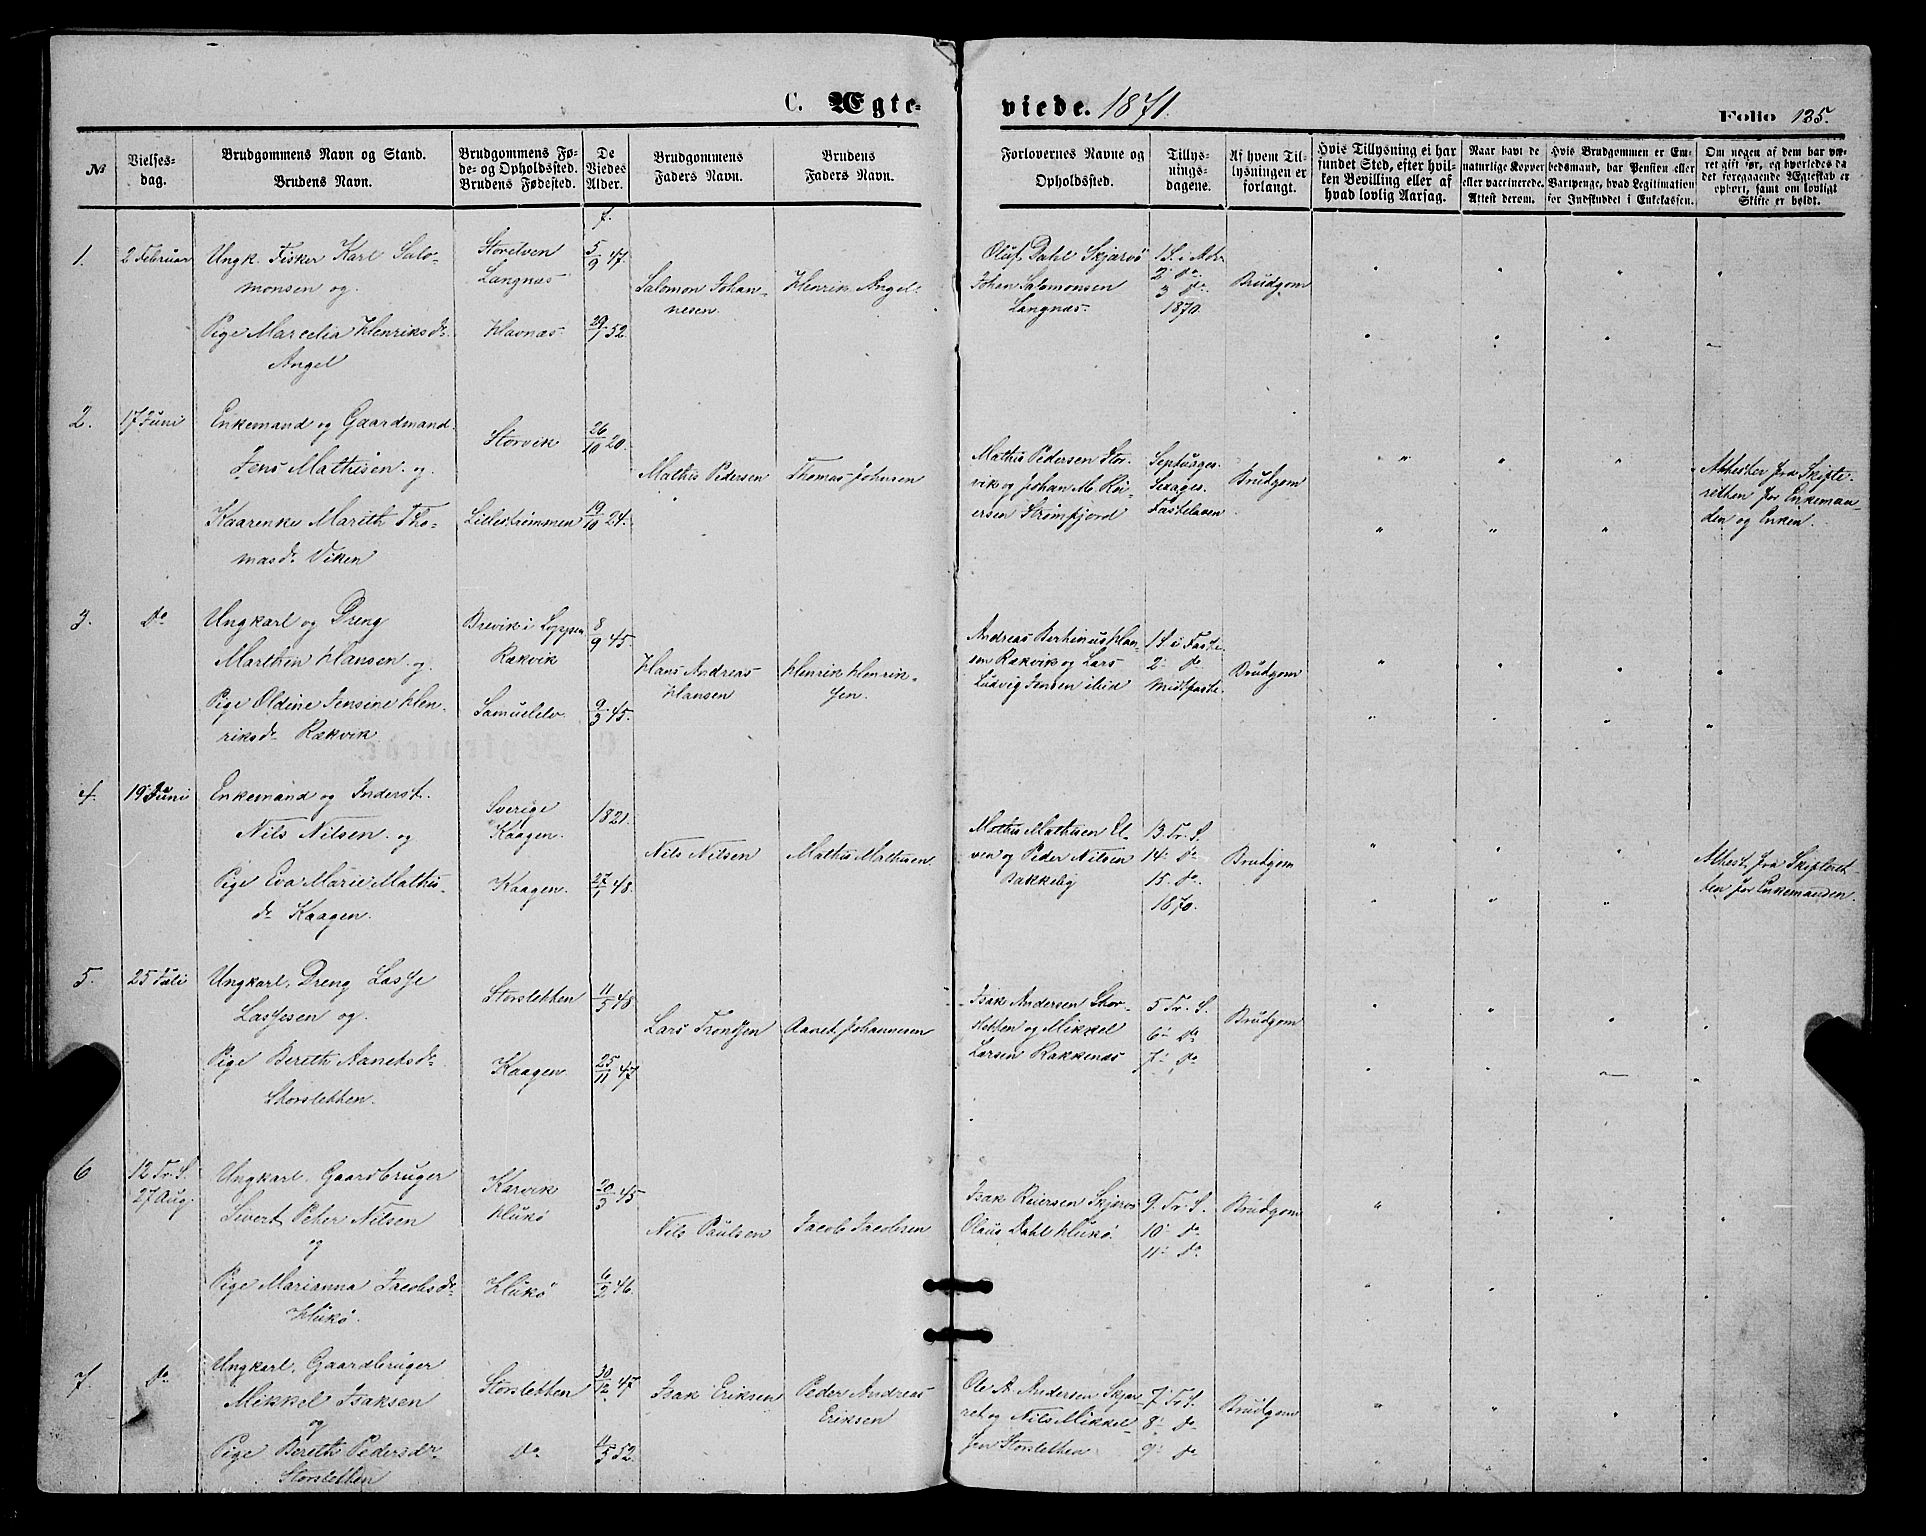 C. Ægte-
viede. 1871.
Folio 125.
№
Vielses-
dag.
Brudgommens Navn og Stand.
Brudens Navn.
Brudgommens Fø-
de- og Opholdssted.
Brudens Fødested.
De
Viedes
Alder.
Brudgommens
Faders Navn.
Brudens
Faders Navn.
Forlovernes Navne og
Opholdssted.
Tillys-
nings-
dagene.
Af hvem Til-
lysningen er
forlangt.
Hvis Tillysning ei har
fundet Sted, efter hvil-
ken Bevilling eller af
hvad lovlig Aarsag.
Naar havt de
naturlige Kopper
eller vaccinerede.
Attest derom.
Hvis Brudgommen er Em-
bedsmand, har Pension eller
Vartpenge, hvad Legitimation
for Indskuddet i Enkekassen.
Om nogen af dem har væ-
ret gift før, og hvorledes da
det foregaaende Ægteskab er
ophørt, samt om lovligt
Skifte er holdt.
f.
1.
2 Februar
Ungk. Fisker Karl Salo-
monsen og
Pige Marcelia Henriksdr.
Angel
Storelven
Langnæs
Havnæs
5/9 47.
29/7 52.
Salomon Johan-
nesen
Henrik Angel
Oluf Dahl Skjærvø
Johan Salamonsen
Langnæs
1 S. i Adv.
2 do.
3 do.
1870.
Brudgom
2.
17 Juni
Enkemand og Gaardmand
Jens Mathisen og
Kaarenke Marith Tho-
masdr. Viken
Storvik
Lillestrømmen
26/10 20.
19/10 24.
Mathis Pedersen
Thomas Johnsen
Mathis Pedersen Stor-
vik og Johan M. Rei-
ersen Strømfjord
Septuages.
Sexages.
Fastelaven
Brudgom
Athester fra Skifte-
retten for Enkeman
den og Enken.
3.
do
Ungkarl og Dreng
Marthin Hansen og
Pige Oldine Jensine Hen-
riksdr. Rækvik
Brevik i Loppen
Rækvik
Samuelelv
8/9 45.
9/3 45.
Hans Andreas
Hansen
Henrik Henrik-
sen.
Andreas Berthinus Han-
sen Rækvik og Lars
Ludvig Jensen ibid
1 S. i Faste
2 do.
Midtfaste.
Brudgom
4.
19 Juni
Enkemand og Inderst
Nils Nilsen og
Pige Eva Marie Mathis-
dr. Kaagen.
Sverige
Kaagen.
Kaagen.
1821.
27/1 48.
Nils Nilsen
Mathis Mathisen
Mathis Mathisen El-
ven og Peder Nilsen
Bakkeby
13. Tr. S.
14. do.
15. do.
1870.
Brudgom
Athest fra Skifteret-
ten for Enkemanden.
5.
25 Juli
Ungkarl, Dreng Lasse
Lassesen og
Pige Bereth Aanetsdr.
Storsletten.
Storsletten
Kaagen
11/5 48.
25/11 47.
Lars Trondsen
Aanet Johannesen
Isak Andersen Stor-
sletten og Mikkel
Larsen Rakkenæs
5 Tr. S.
6 do
7 do
Brudgom
6
12 Tr. S.
27 Aug.
Ungkarl, Gaardbruger
Sivert Peter Nilsen
og
Pige Marianna Jacobsdr.
Hukø.
Karvik
Hukø
Hukø
20/3 45
6/2 46.
Nils Paulsen
Jacob Jacobsen
Isak Reiersen Skjærvø
Olaus Dahl Hukø.
9. Tr. S.
10 do
11 do
Brudgom
7.
do
Ungkarl, Gaardbruger
Mikkel Isaksen
og
Pige Bereth Pedersdr.
Storsletten
Storsletten
do
30/12 47
4/5 52.
Isak Eriksen
Peder Andreas
Eriksen
Ole A. Andersen Skjær-
ret og Nils Mikkel-
sen Storsletten
7 Tr. S.
8 do
9 do
Brudgom